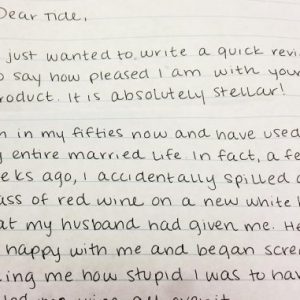 Dear Tide,
just wanted to write a quick revi
o say how pleased I am with your
product. It is absolutely stellar!
m in my fifties now and have used
entire married life. In fact, a fe
eks ago, I accidentally spilled a
ass of red wine on a new white
at my husband had given me. He
happy with me and began scre
ing me how stupid I was to hav